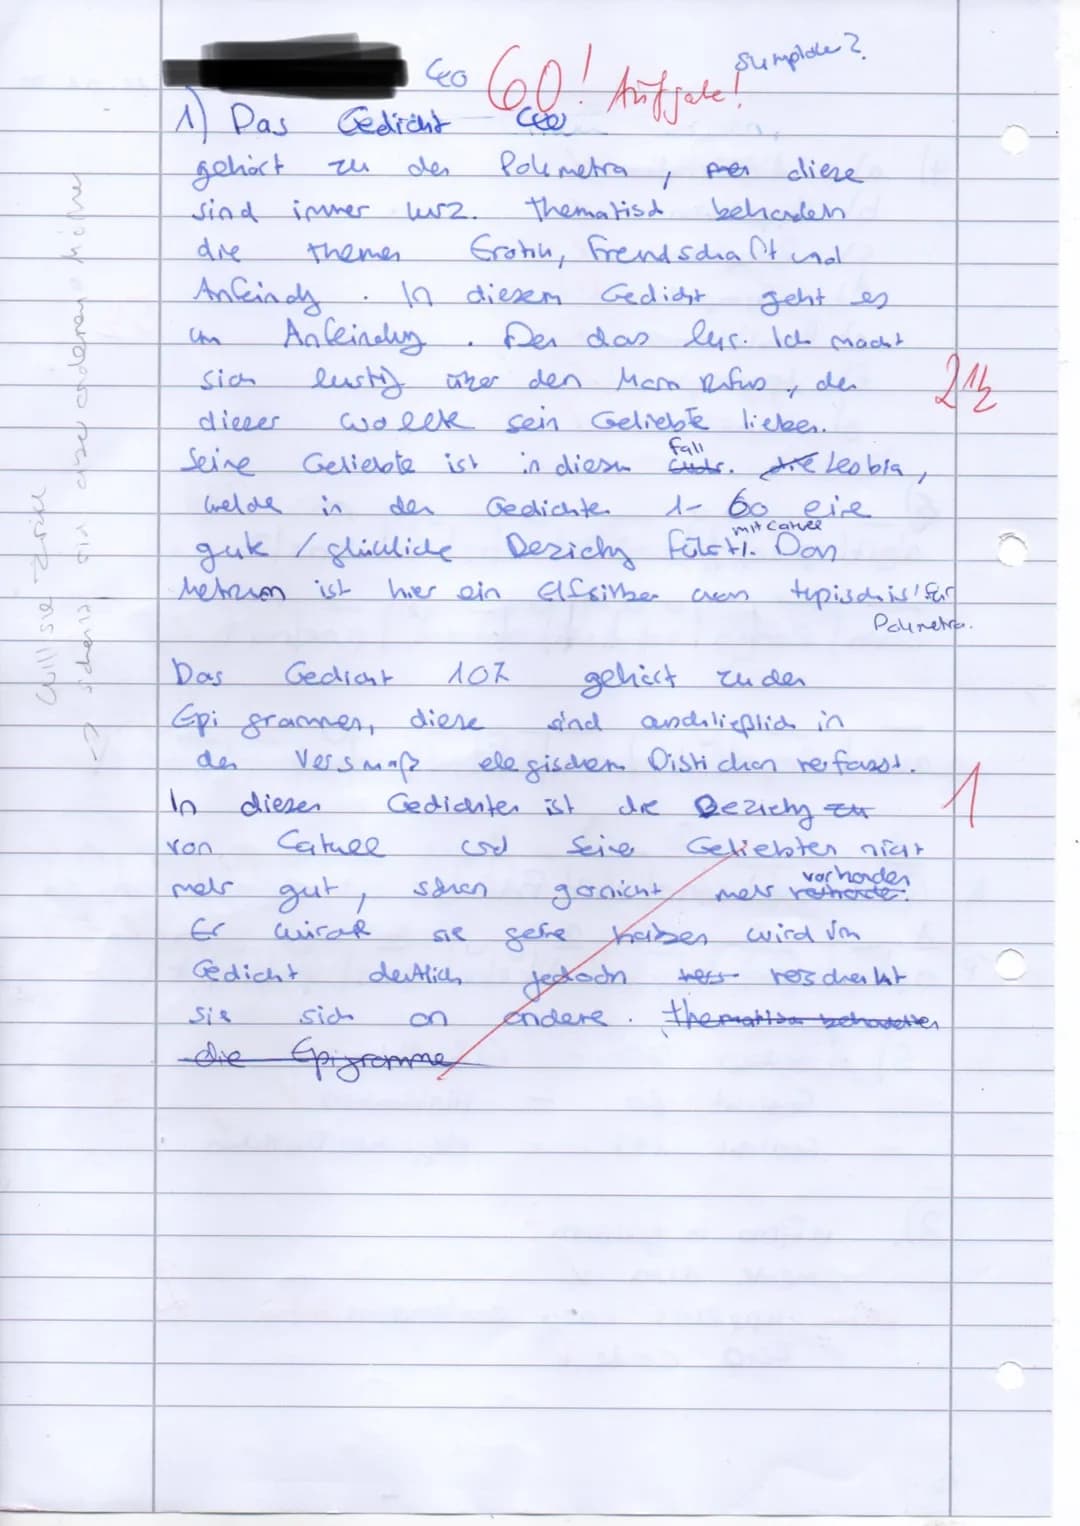 60! Aufgabe!
1) Das Gedicht
gehört zu den Polimetra, diese
sind immer kurz. thematisch behandeln
die themen Erotik, Freundschaft und
Anfeindg. In diesem Gedicht geht es
um Anfeindug. Der das lyr. Ich macht
sich lustig über den Mann Rufus, der
dieser wollte sein Geliebte lieben.
Seine Geliebte ist in diesem Fall Lesbia,
welche in den Gedichte 1-60 eine
gute/glückliche Beziehg mit Catull führt.
Metrum ist hier ein Elfsilber typisch is! für
Polimetra.
Das Gedicht 107 gehört zu den
Epigrammen, diese sind auschließlich in
den Versmaß elegischem Distichon verfasst.
In diesen Gedichten ist die Beziehg zu
von Catull und Seine Geliebten nicht
mehr gut, schon garnicht mehr vorhanden
Er würde sie gerne haben wird im
Gedicht deutlich jedoch verschenkt
sie sich an andere. thematisch behandelten
die Epigramme
2 1/2
1
will sie zurück